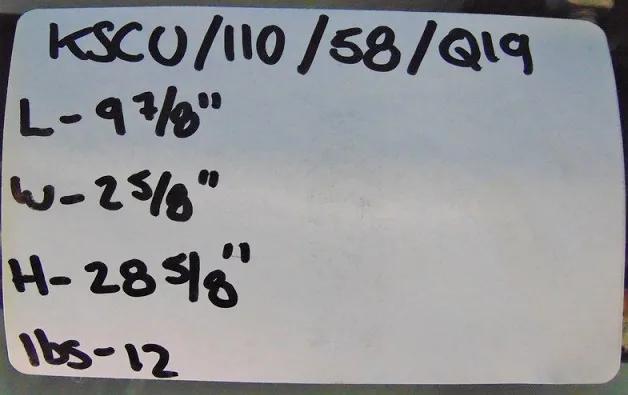 KSCU/110/58/Q19
L-9 7/8"
W-2 5/8"
H-28 5/8"
lbs-12